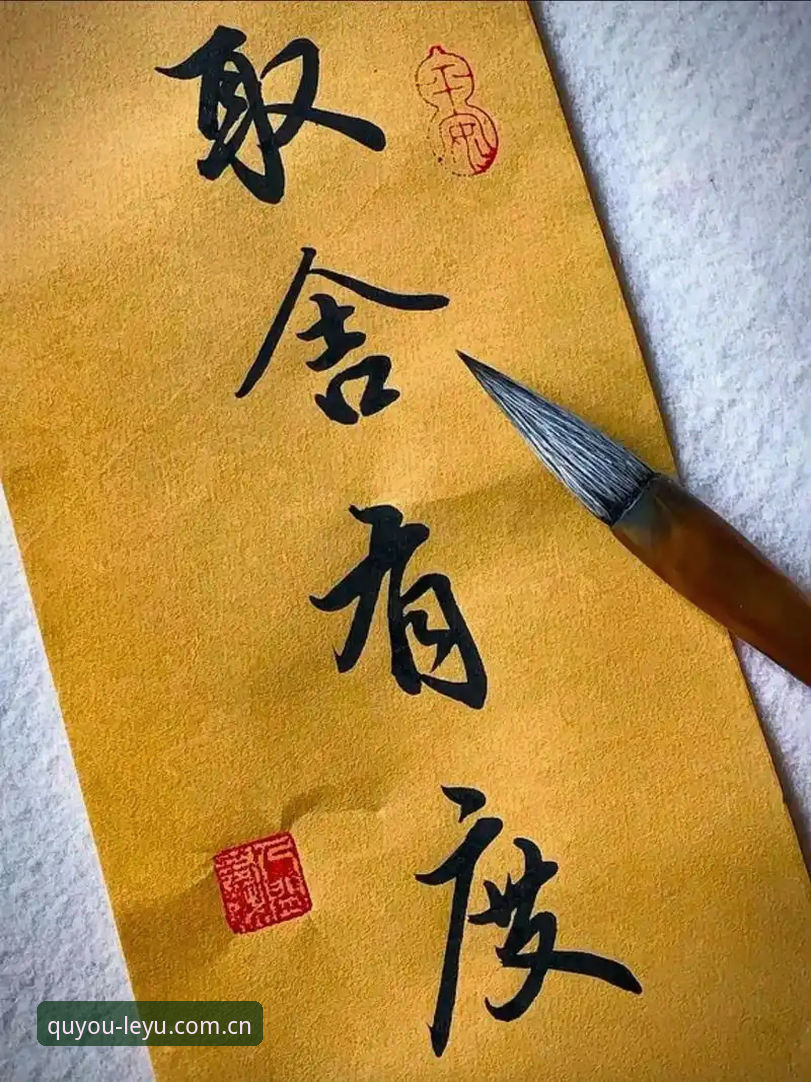 取舍有度
平安
quyou-leyu.com.cn